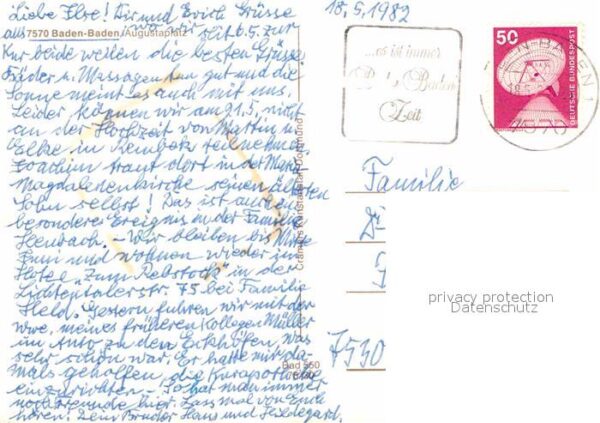 18.5.1982
Liebe Else! Dir und Erich Grüsse
7570 Baden-Baden, Augustaplatz
aus wo wir seit 6.5. zur
Kur beide weilen die besten Grüsse
Bäder u. Massagen tun gut und die
Sonne meint es auch mit uns.
Leider können wir am 21.5. nicht
an der Hochzeit von Martin u.
Elke in teilnehmen
Joachim traut dort in der Maria
Magdalenenkirche seinen ältesten
Sohn selbst! Das ist auch ein
besonderes Ereignis in der Familie
Wir bleiben bis Mitte
Juni und wohnen wieder im
Hotel "Zum Rebstock" in der
Lichtentalerstr. 75 bei Familie
Held. Gestern fuhren wir mit der
Wwe. meines früheren Kollegen Müller
im Auto zu den was
sehr schön war. Er hatte mir da-
mals geholfen die Kurapotheke
einzurichten - So hat man immer
noch Freunde hier. Lass mal von Euch
hören! Dein Bruder Hans und Hildegard.
Cramers Kunstanstalt Dortmund
Bad 550
... es ist immer
Baden-Baden
Zeit
50
DEUTSCHE BUNDESPOST
BADEN 1
18.5.
7570
Familie
7530
privacy protection
Datenschutz